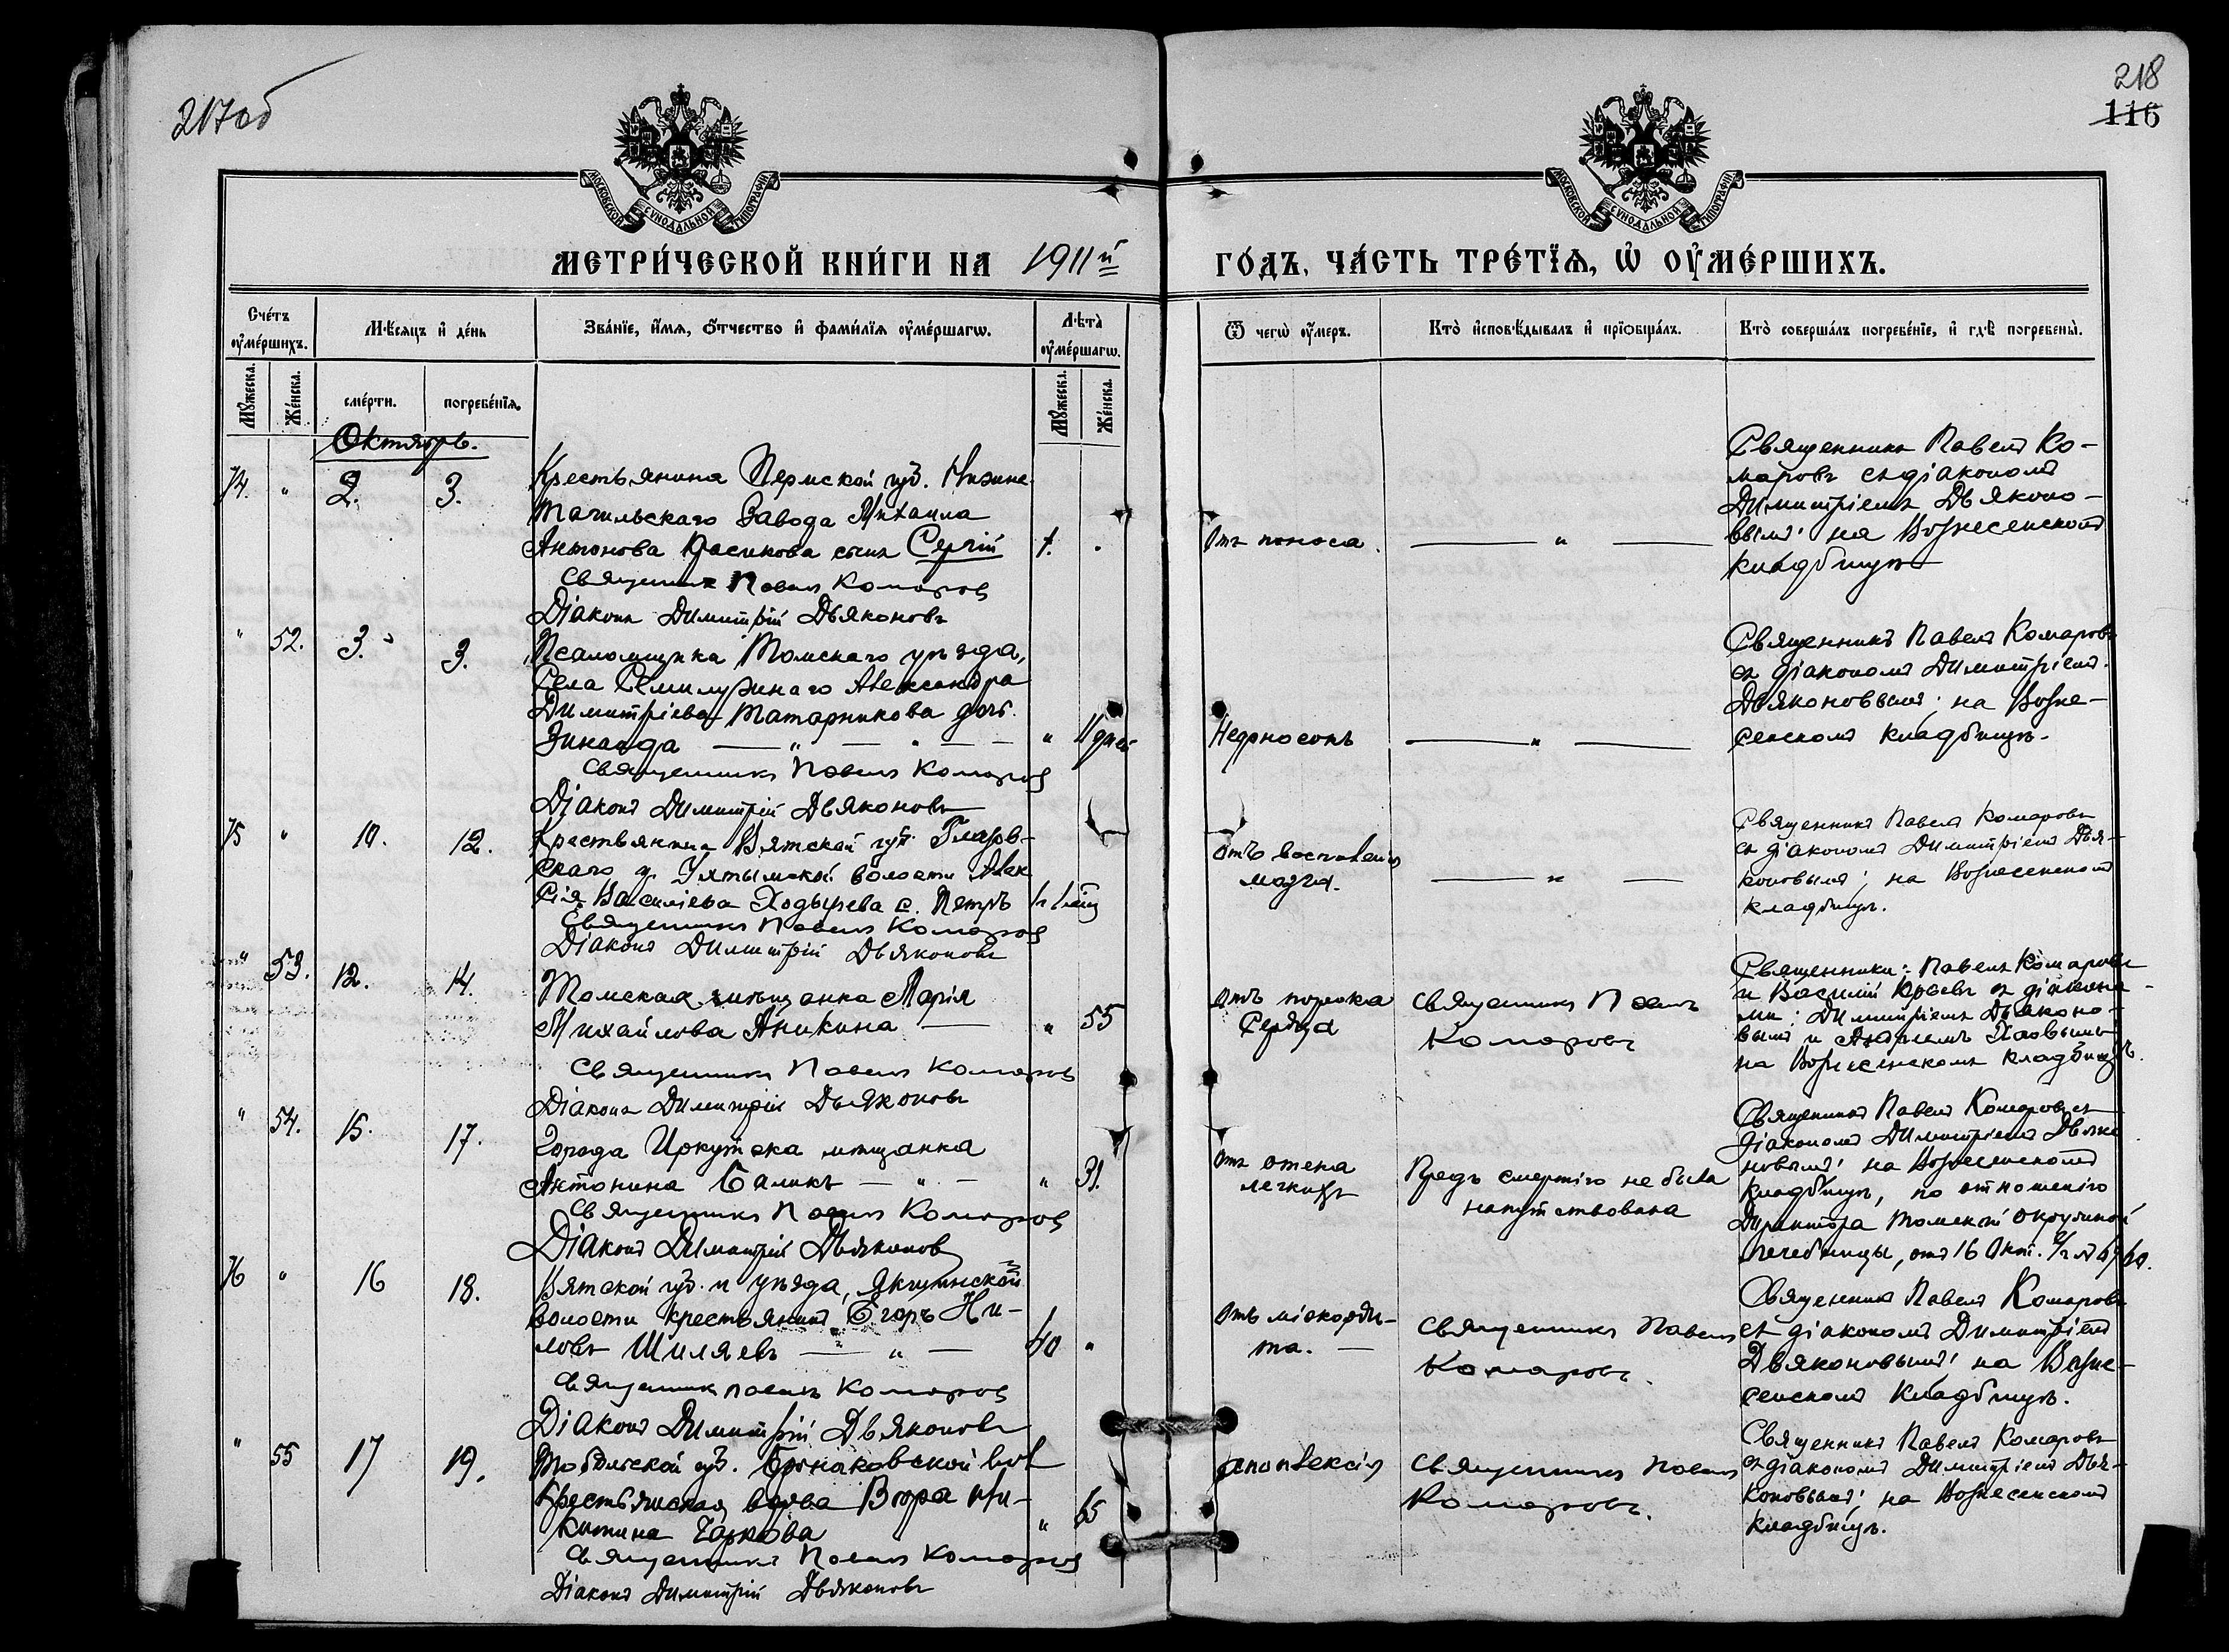 217об
218
116
МОСКОВСКОЙ СѴНОДАЛЬНОЙ ТИПОГРАФІИ
МОСКОВСКОЙ СѴНОДАЛЬНОЙ ТИПОГРАФІИ
МЕТРИ́ЧЕСКОЙ КНИ́ГИ НА 1911й
ГО́ДЪ, ЧА́СТЬ ТРЕ́ТЇѦ, Ѽ ОУ҆МЕ́РШИХЪ.
Счетъ оумершихъ.
Мѣсяцъ и день
Званіе, имя, отчество и фамилія оумершагѡ.
Лѣта оумершагѡ.
Ѿ чегѡ оумеръ.
Кто исповѣдывалъ и пріобщалъ.
Кто совершалъ погребеніе, и гдѣ погребены.
Мужеска.
Женска.
смерти.
погребенія.
Мужеска.
Женска.
Октябрь.
74. " 2. 3.
Крестьянина Пермской губ. Нижне-
Тагильскаго Завода Михаила
Антонова сына Сергій 1. .
Священникъ Павелъ Комаровъ
Діаконъ Димитрій Дьяконовъ
Отъ поноса. — " —
Священникъ Павелъ Ко-
маровъ съ діакономъ
Димитріемъ Дьяконо-
вымъ; на Вознесенскомъ
кладбищѣ
" 52. 3. 3.
Псаломщика Томскаго уѣзда,
Села Семилужнаго Александра
Димитріева Татарникова дочь
Зинаида — " — " — " 11 дней
Священникъ Павелъ Комаровъ
Діаконъ Димитрій Дьяконовъ
Недоносокъ — " —
Священникъ Павелъ Комаровъ
съ діакономъ Димитріемъ
Дьяконовымъ; на Возне-
сенскомъ кладбищѣ.
75 " 10. 12.
Крестьянина Вятской губ. Глазов-
скаго у. волости Алек
сія Васильева Ходырева с. Петръ
Священникъ Павелъ Комаровъ
Діаконъ Димитрій Дьяконовъ
Отъ воспаленія
мозга. — " —
Священникъ Павелъ Комаровъ
съ діакономъ Димитріемъ Дья-
коновымъ; на Вознесенскомъ
кладбищѣ.
" 53. 12. 14.
Томская мѣщанка Марія
Михайлова Аникина — " 55
Священникъ Павелъ Комаровъ
Діаконъ Димитрій Дьяконовъ
Отъ порока
сердца
Священникъ Павелъ
Комаровъ
Священники: Павелъ Комаровъ
и Василій Юрьевъ съ діакона-
ми: Димитріемъ Дьяконо-
вымъ и
на Вознесенскомъ кладбищѣ.
" 54. 15. 17.
Города Иркутска мѣщанка
Антонина — " — " 31.
Священникъ Павелъ Комаровъ
Діаконъ Димитрій Дьяконовъ
Отъ отека
легкихъ
Предъ смертію не была
напутствована
Священникъ Павелъ Комаровъ съ
діакономъ Димитріемъ Дьяко
новымъ; на Вознесенскомъ
кладбищѣ, по отношенію
Директора Томской окружной
лечебницы, отъ 16 Окт.
76 " 16 18.
Вятской губ. и уѣзда,
волости крестьянинъ Егоръ Ни-
ловъ Шиляевъ — " — "
Священникъ Павелъ Комаровъ
Діаконъ Димитрій Дьяконовъ
Отъ міокарди-
та. —
Священникъ Павелъ
Комаровъ.
Священникъ Павелъ Комаровъ
съ діакономъ Димитріемъ
Дьяконовымъ; на Возне-
сенскомъ кладбищѣ.
" 55 17 19.
Тобольской губ. вол
крестьянская вдова Вѣра Ни-
китина " 65
Священникъ Павелъ Комаровъ
Діаконъ Димитрій Дьяконовъ
Апоплексія
Священникъ Павелъ
Комаровъ.
Священникъ Павелъ Комаровъ
съ діакономъ Димитріемъ Дья-
коновымъ; на Вознесенскомъ
кладбищѣ.